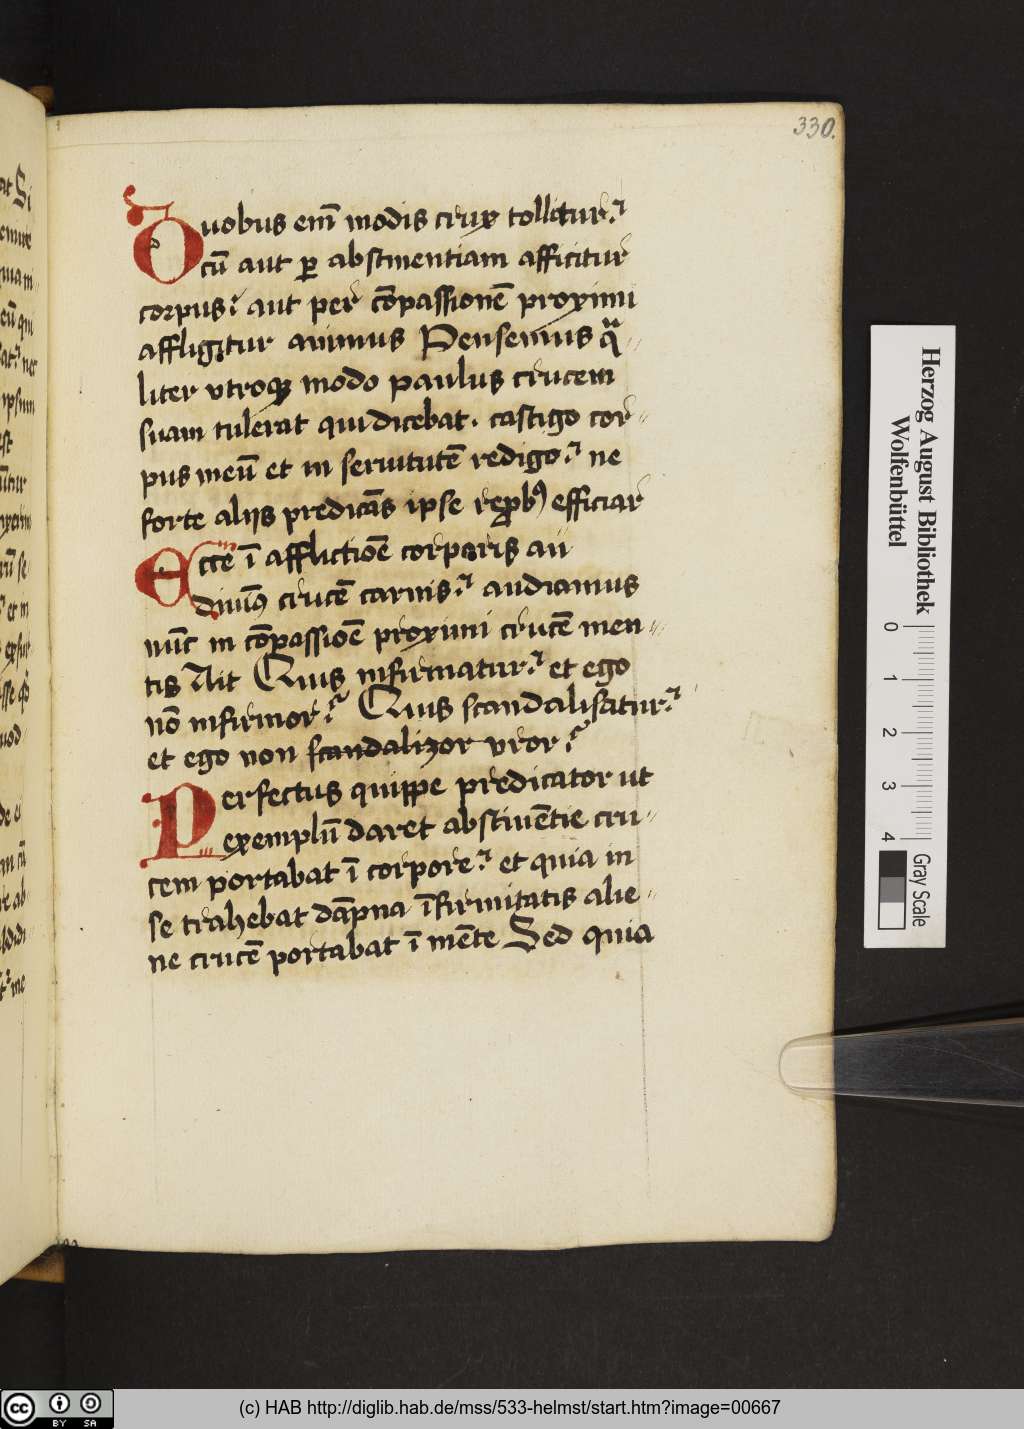 330.
Duobus em̄ modis crux tollitur?
cū aut ꝑ abstinentiam afficitur
corpus? aut per cōpassionē proximi
affligitur animus Pensemus qͣ-
liter vtroqꝫ modo paulus crucem
suam tulerat qui dicebat. castigo cor-
pus meū et in seruitutē redigo? ne
forte aliis predicās ipse reꝓbꝯ efficiar
Ecce ī afflictiōe corporis au
diuimꝰ crucē carnis? audiamus
nūc in cōpassiōe proximi crucē men-
tis Ait Quis infirmatur? et ego
nō infirmor? Quis scandalisatur?
et ego non scandalizor vror?
Perfectus quippe predicator ut
exemplū daret abstinētie cru-
cem portabat ī corpore? et quia in
se trahebat dāpna īfirmitatis alie-
ne crucē portabat ī mēte Sed quia
Herzog August Bibliothek
Wolfenbüttel
0 1 2 3 4
Gray Scale
cc BY SA
(c) HAB http://diglib.hab.de/mss/533-helmst/start.htm?image=00667